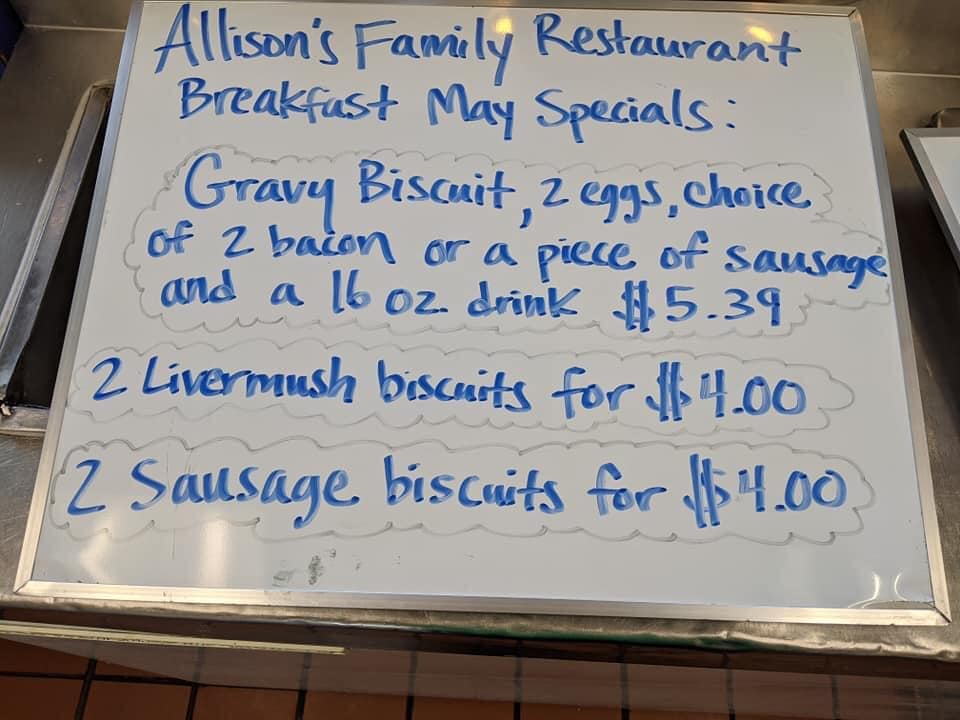 Allison's Family Restaurant
Breakfast May Specials:
Gravy Biscuit, 2 eggs, choice
of 2 bacon or a piece of sausage
and a 16 oz. drink $5.39
2 Livermush biscuits for $4.00
2 Sausage biscuits for $4.00